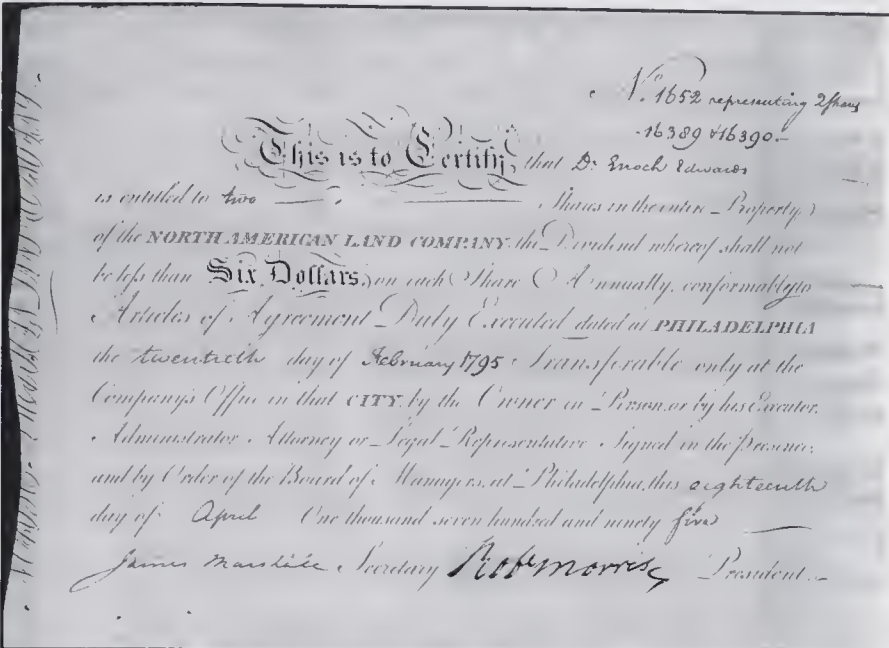 No. 1652 representing 2 Shares
16389 & 16390.-
This is to Certify, that Dr. Enoch Edwards
is entitled to two Shares in the entire Property
of the NORTH AMERICAN LAND COMPANY, the Dividend whereof shall not
be less than Six Dollars, on each Share Annually, conformably to
Articles of Agreement Duly Executed dated at PHILADELPHIA
the twentieth day of February 1795 Transferable only at the
Company's Office in that CITY, by the Owner in Person, or by his Executor,
Administrator Attorney or Legal Representative Signed in the Presence,
and by Order of the Board of Managers, at Philadelphia, this eighteenth
day of April One thousand seven hundred and ninety five
James Marshall Secretary Robt Morris President